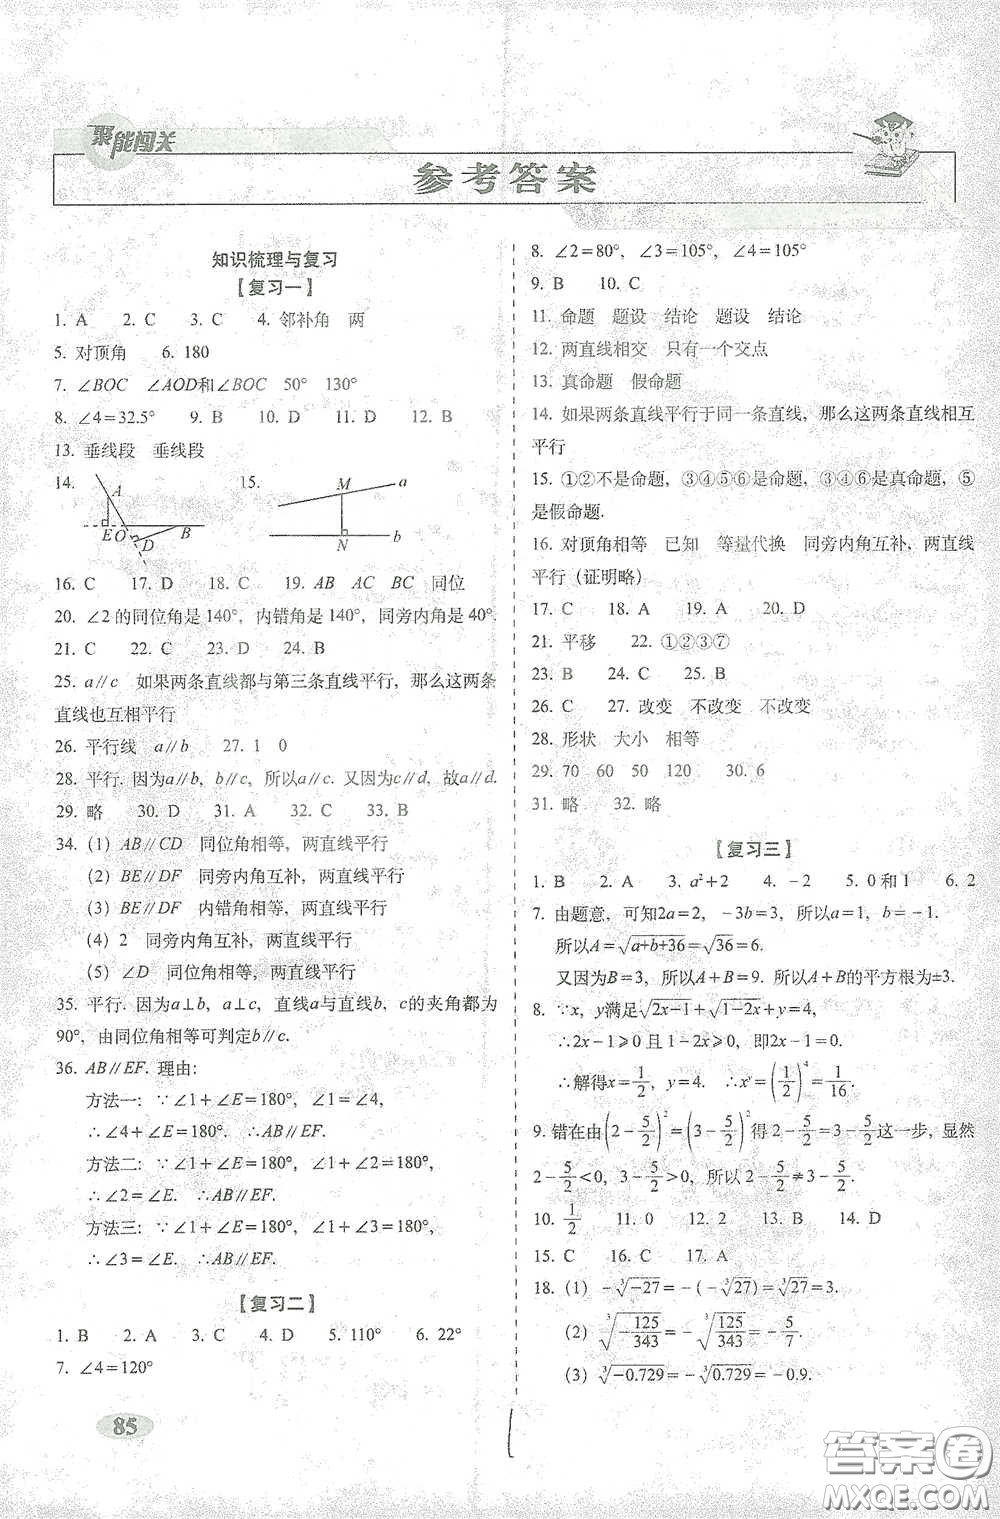 聚能闯关
参考答案
知识梳理与复习
【复习一】
1. A 2. C 3. C 4. 邻补角 两
5. 对顶角 6. 180
7. ∠BOC ∠AOD和∠BOC 50° 130°
8. ∠4=32.5° 9. B 10. D 11. D 12. B
13. 垂线段 垂线段
14. A E O B D 15. M a N b
16. C 17. D 18. C 19. AB AC BC 同位
20. ∠2的同位角是140°，内错角是140°，同旁内角是40°.
21. C 22. C 23. D 24. B
25. a∥c 如果两条直线都与第三条直线平行，那么这两条
直线也互相平行
26. 平行线 a∥b 27. 1 0
28. 平行. 因为a∥b，b∥c，所以a∥c. 又因为c∥d，故a∥d.
29. 略 30. D 31. A 32. C 33. B
34. (1) AB∥CD 同位角相等，两直线平行
(2) BE∥DF 同旁内角互补，两直线平行
(3) BE∥DF 内错角相等，两直线平行
(4) 2 同旁内角互补，两直线平行
(5) ∠D 同位角相等，两直线平行
35. 平行. 因为a⊥b，a⊥c，直线a与直线b，c的夹角都为
90°，由同位角相等可判定b∥c.
36. AB∥EF. 理由:
方法一: ∵∠1+∠E=180°，∠1=∠4，
∴∠4+∠E=180°，∴AB∥EF.
方法二: ∵∠1+∠E=180°，∠1+∠2=180°，
∴∠2=∠E. ∴AB∥EF.
方法三: ∵∠1+∠E=180°，∠1+∠3=180°，
∴∠3=∠E. ∴AB∥EF.
【复习二】
1. B 2. A 3. C 4. D 5. 110° 6. 22°
7. ∠4=120°
85
8. ∠2=80°，∠3=105°，∠4=105°
9. B 10. C
11. 命题 题设 结论 题设 结论
12. 两直线相交 只有一个交点
13. 真命题 假命题
14. 如果两条直线平行于同一条直线，那么这两条直线相互
平行
15. ①②不是命题，③④⑤⑥是命题，③④⑥是真命题，⑤
是假命题.
16. 对顶角相等 已知 等量代换 同旁内角互补，两直线
平行（证明略）
17. C 18. A 19. A 20. D
21. 平移 22. ①②③⑦
23. B 24. C 25. B
26. C 27. 改变 不改变 不改变
28. 形状 大小 相等
29. 70 60 50 120 30. 6
31. 略 32. 略
【复习三】
1. B 2. A 3. a²+2 4. -2 5. 0和1 6. 2
7. 由题意，可知2a=2，-3b=3，所以a=1，b=-1.
所以A=√(a+b+36)=√36=6.
又因为B=3，所以A+B=9. 所以A+B的平方根为±3.
8. ∵x，y满足√(2x-1)+√(1-2x)+y=4，
∴2x-1≥0且1-2x≥0，即2x-1=0.
∴解得x=1/2，y=4. ∴x^y=(1/2)^4=1/16.
9. 错在由(2-5/2)²=(3-5/2)²得2-5/2=3-5/2这一步，显然
2-5/2<0，3-5/2>0，所以2-5/2≠3-5/2.
10. 1/2 11. 0 12. 2 13. B 14. D
15. C 16. C 17. A
18. (1) -∛-27=-(-∛27)=∛27=3.
(2) ∛(-125/343)=-∛(125/343)=-5/7.
(3) ∛-0.729=-∛0.729=-0.9.
答案卷
MXQE.COM